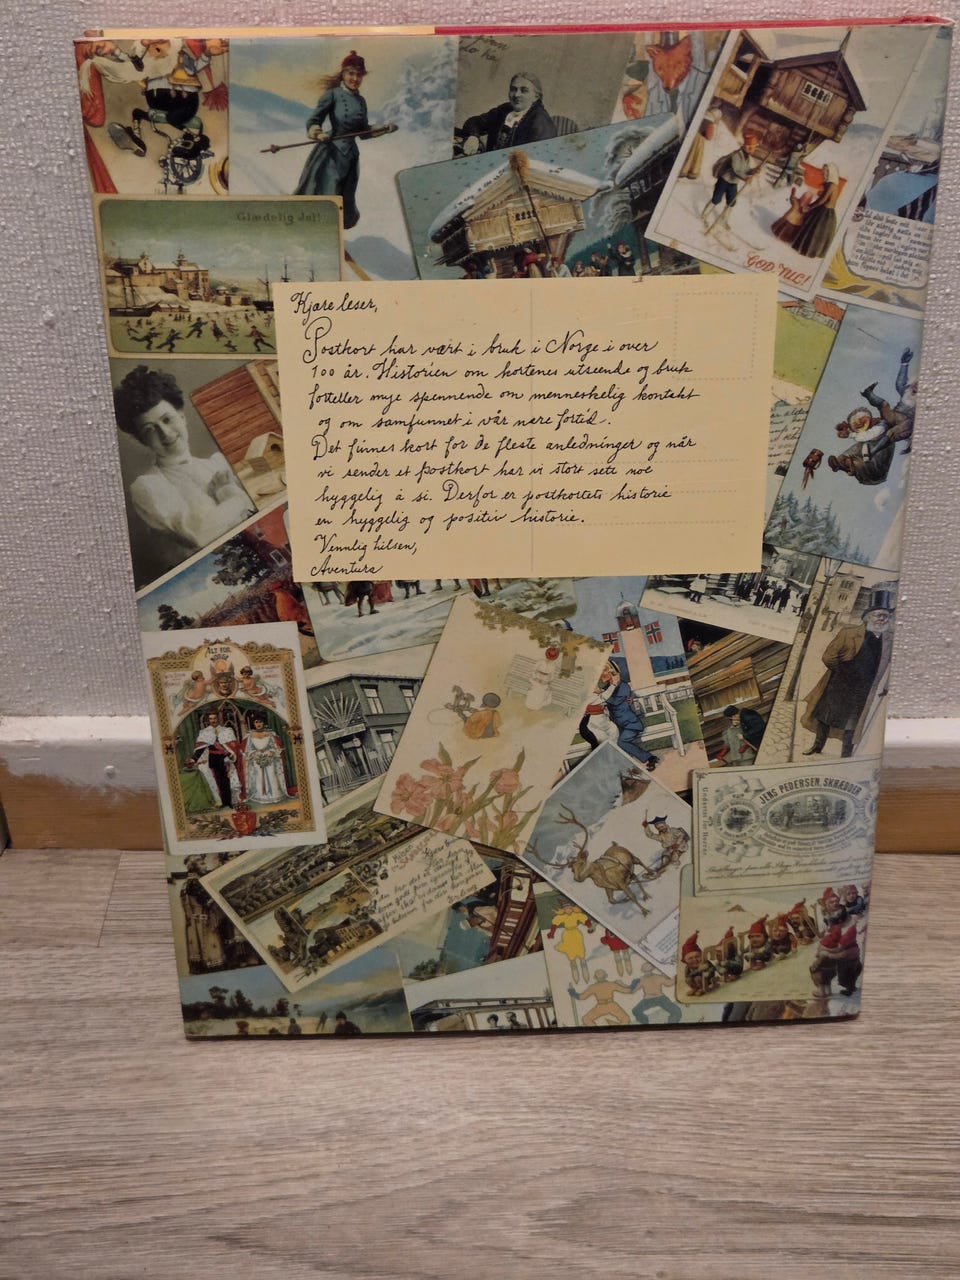 Glædelig Jul!
GOD JUL!
Kjære leser,
Postkort har vært i bruk i Norge i over
100 år. Historien om kortenes utseende og bruk
forteller mye spennende om menneskelig kontakt
og om samfunnet i vår nære fortid.
Det finnes kort for de fleste anledninger og når
vi sender et postkort har vi stort sett noe
hyggelig å si. Derfor er postkortets historie
en hyggelig og positiv historie.
Vennlig hilsen,
Aventura
ALT FOR
NORGE
JENS PEDERSEN, SKRÆDDER